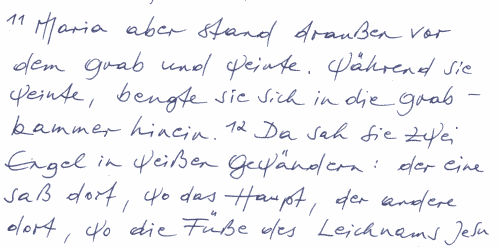 ¹¹ Maria aber stand draußen vor
dem Grab und weinte. Während sie
weinte, beugte sie sich in die Grab-
kammer hinein. ¹² Da sah sie zwei
Engel in weißen Gewändern: der eine
saß dort, wo das Haupt, der andere
dort, wo die Füße des Leichnams Jesu